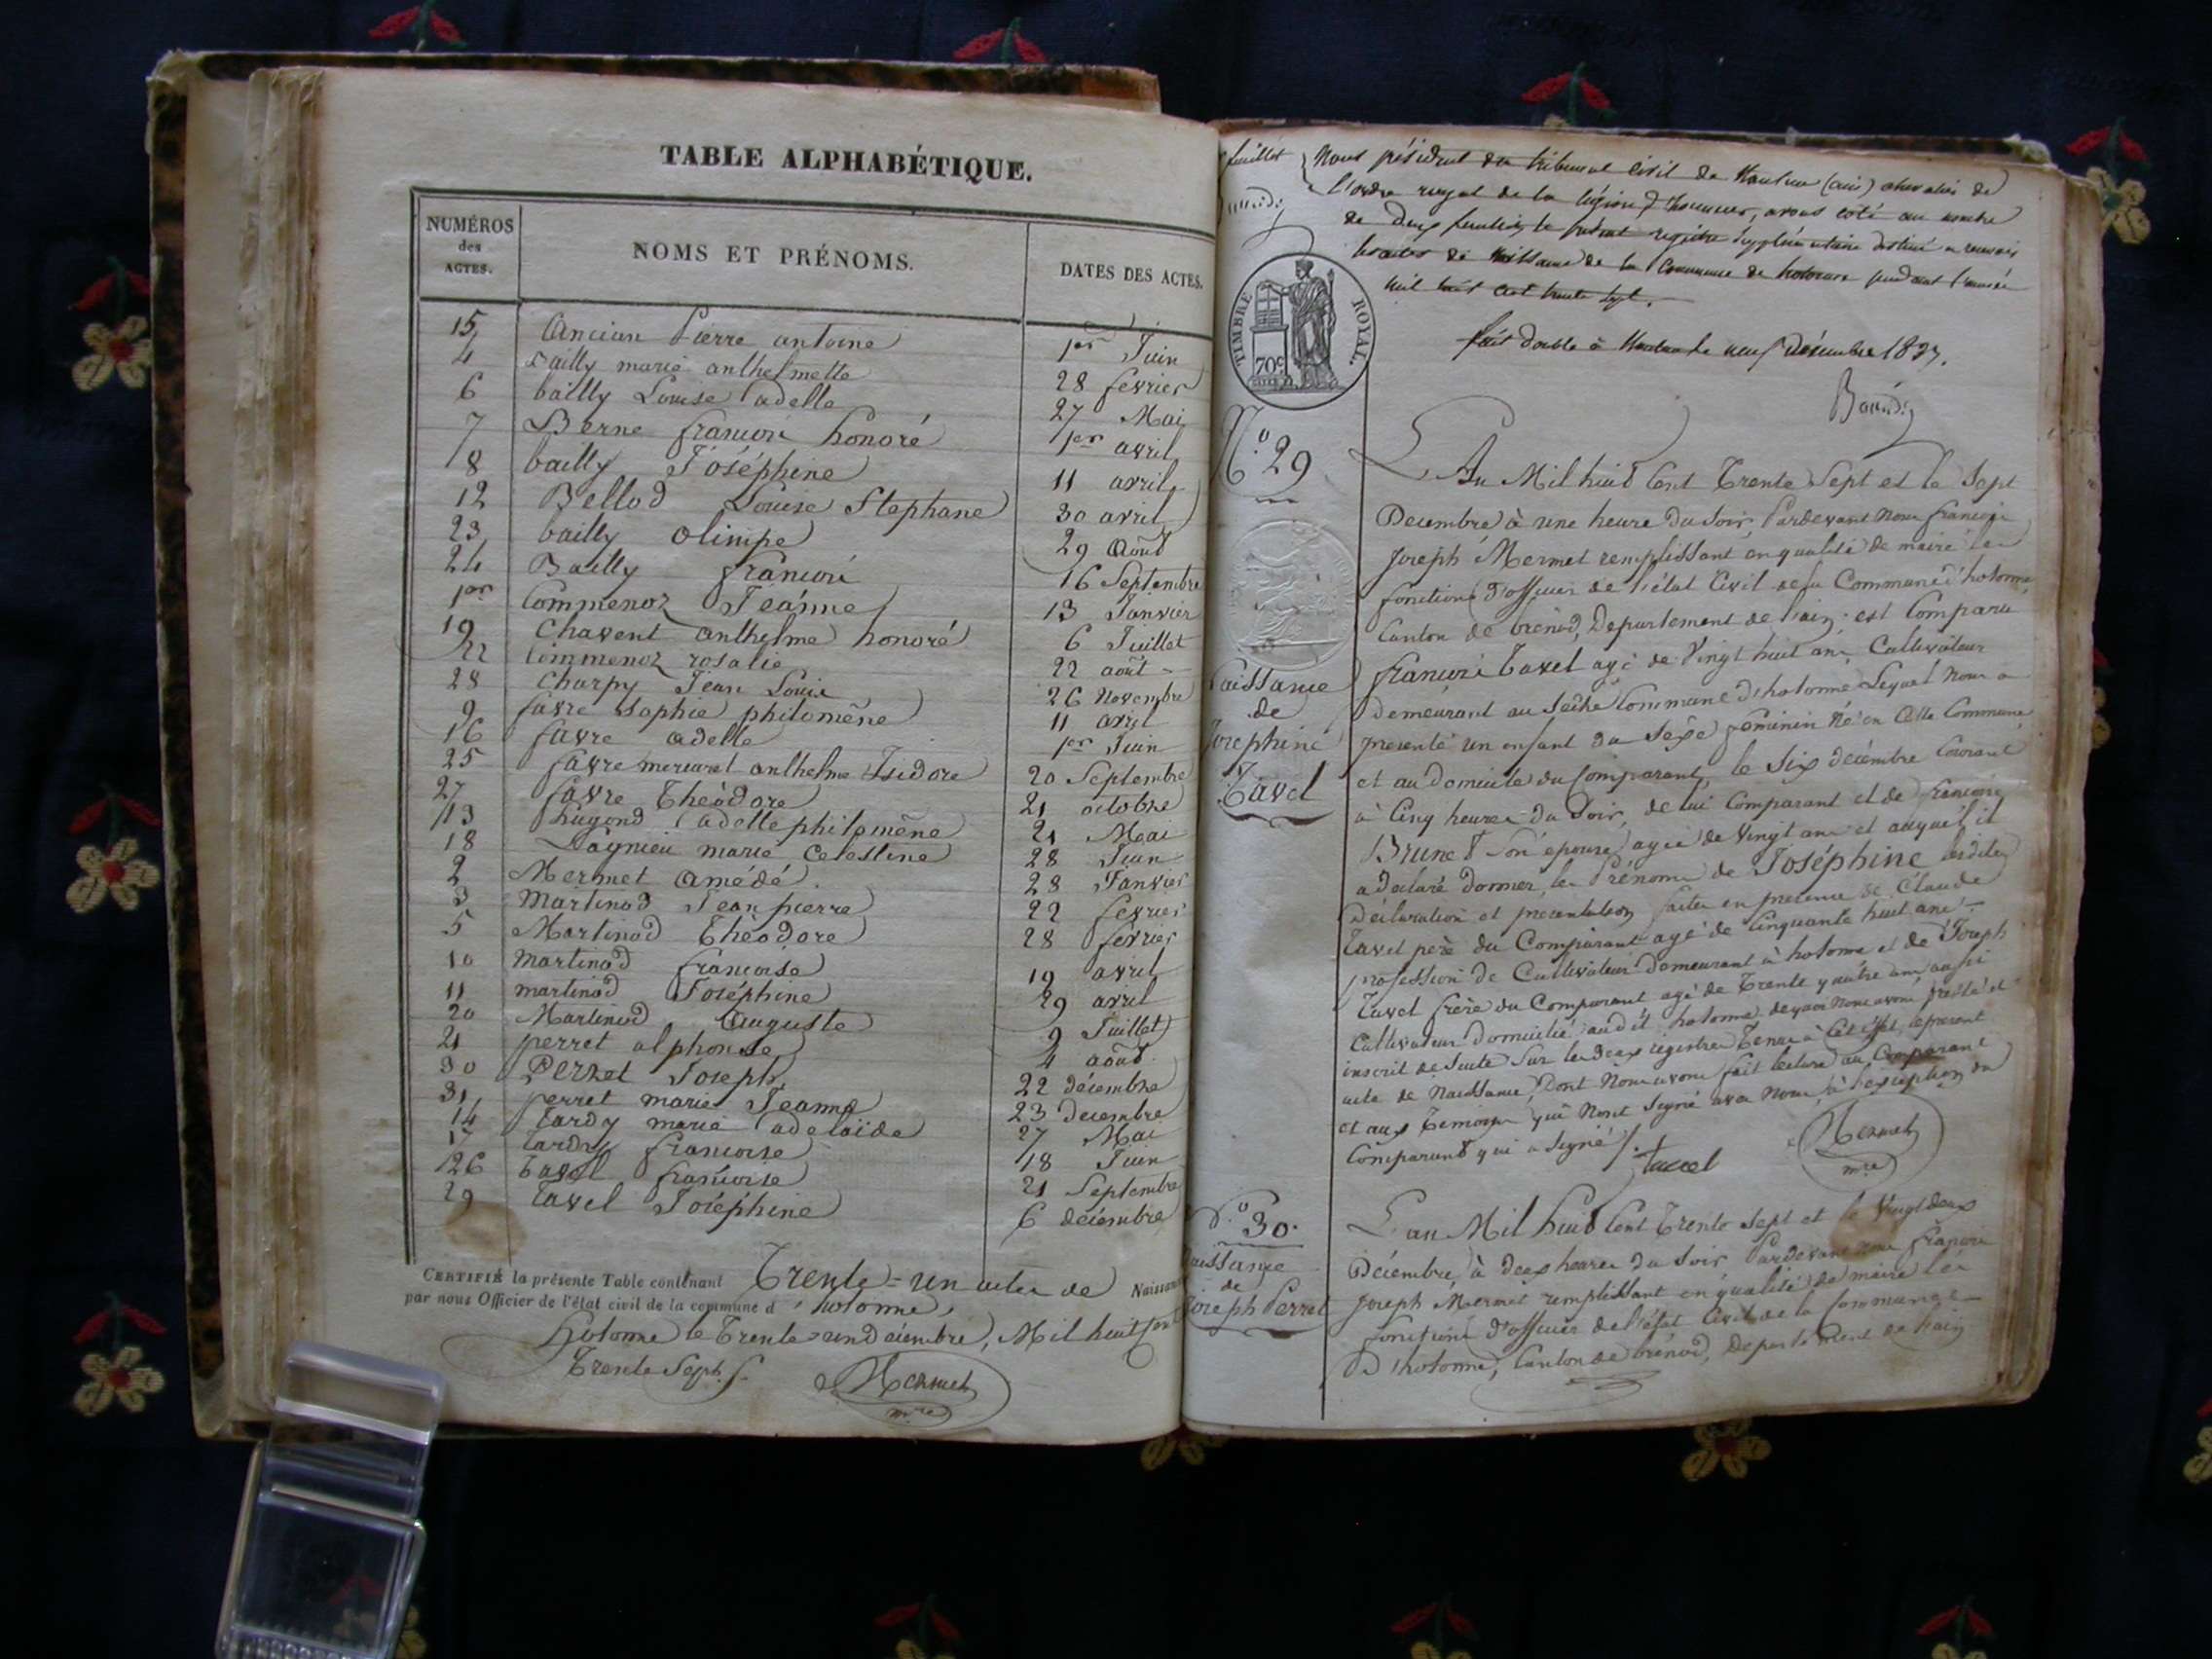 TABLE ALPHABÉTIQUE.
NUMÉROS
des
ACTES.
NOMS ET PRÉNOMS.
DATES DES ACTES.
15 Ancian Pierre antoine 1er Juin
4 Bailly marie anthelmette 28 fevrier
6 bailly Louise adelle 27 Mai
7 Berne françois honoré 1er avril
8 bailly Joséphine 11 avril
12 Bellod Louise Stephane 30 avril
23 bailly olimpe 29 Août
24 Bailly françois 16 Septembre
1er Commenoz Jeanne 13 Janvier
19 Chavent anthelme honoré 6 Juillet
22 Commenoz rosalie 22 août
28 Charpy Jean Louis 26 Novembre
9 favre Sophie philomène 11 avril
16 favre adelle 1er Juin
25 favre mercuret anthelme Isidore 20 Septembre
27 favre Théodore 21 octobre
13 hugond adelle philomène 21 Mai
18 Lagnieu marie Celestine 28 Juin
2 Mermet Amédé. 28 Janvier
3 Martinod Jean pierre 22 fevrier
5 Martinod Théodore 28 février
10 martinod françoise 19 avril
11 martinod Joséphine 29 avril
20 Martinod Auguste 9 Juillet
21 perret alphonse 4 août
30 Perret Joseph 22 décembre
31 perret marie Jeanne 23 Decembre
14 Tardy marie adelaïde 27 Mai
17 Tardy françoise 18 Juin
26 Tavel françoise 21 Septembre
29 Tavel Joséphine 6 décembre
CERTIFIÉ la présente Table contenant Trente-un actes de Naissan
par nous Officier de l'état civil de la commune d'hotonne,
hotonne le Trente un décembre, Mil huit Cent
Trente Sept.
Mermet
mre
feuillet
Nous président du tribunal Civil de Nantua (ain) chevalier de
l'ordre royal de la légion d'honneur, avons coté au nombre
de deux feuillets le présent registre supplémentaire destiné a recevoir
les actes de Naissance de la Commune de hotonne pendant l'année
mil huit cent trente sept.
fait double à Nantua le neuf Décembre 1837.
TIMBRE ROYAL.
70c
No. 29
Naissance
de
Josephine
Tavel
L'An Mil huit Cent Trente Sept et le Sept
Decembre à une heure du Soir Pardevant Nous françois
Joseph Mermet remplissant en qualité de maire les
fonctions d'officier de l'état Civil de la Commune d'hotonne
Canton de brénod, Departement de l'ain est Comparu
françois Tavel agé de Vingt huit ans Cultivateur
Demeurant au Commune d'hotonne Lequel Nous a
presenté un enfant du Sexe feminin Né en Cette Commune
et au Domicile du Comparant, le Six décembre Courant
à Cinq heures du Soir, de lui Comparant et de françoise
Brunet Son épouse agée de Vingt ans et auquel il
a declaré donner les Prénoms de Joséphine lesdites
Déclaration et présentation faites en presence de Claude
Tavel père du Comparant agé de Cinquante huit ans
profession de Cultivateur Demeurant à hotonne et de Joseph
Tavel frère du Comparant agé de Trente quatre ans aussi
Cultivateur Domicilié audit hotonne
inscrit de Suite Sur les deux registres Tenus à Cet effet, le present
acte de Naissance, Dont Nous avons fait lecture au Comparant
et aux Temoins qui N'ont Signé avec Nous, à l'exception du
Comparant qui a Signé
Tavel
Mermet
mre
No. 30.
Naissance
de
Joseph Perret
L'an Mil huit Cent Trente Sept et le Vingt deux
Décembre, à deux heures du Soir Pardevant nous françois
Joseph Mermet remplissant en qualité de maire les
fonctions d'officier de l'état Civil de la Commune
D'hotonne, Canton de brénod, Departement de l'ain